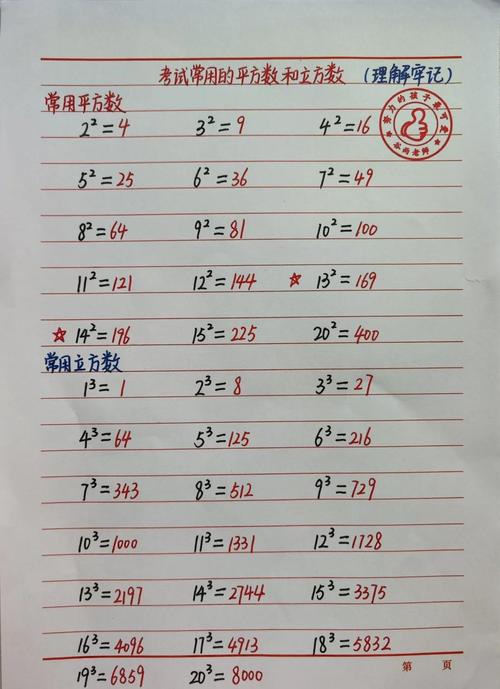 考试常用的平方数和立方数 (理解牢记)
常用平方数
2²=4 3²=9 4²=16
努力的孩子最可爱
5²=25 6²=36 7²=49
8²=64 9²=81 10²=100
11²=121 12²=144 ☆ 13²=169
☆ 14²=196 15²=225 20²=400
常用立方数
1³=1 2³=8 3³=27
4³=64 5³=125 6³=216
7³=343 8³=512 9³=729
10³=1000 11³=1331 12³=1728
13³=2197 14³=2744 15³=3375
16³=4096 17³=4913 18³=5832
第 页
19³=6859 20³=8000